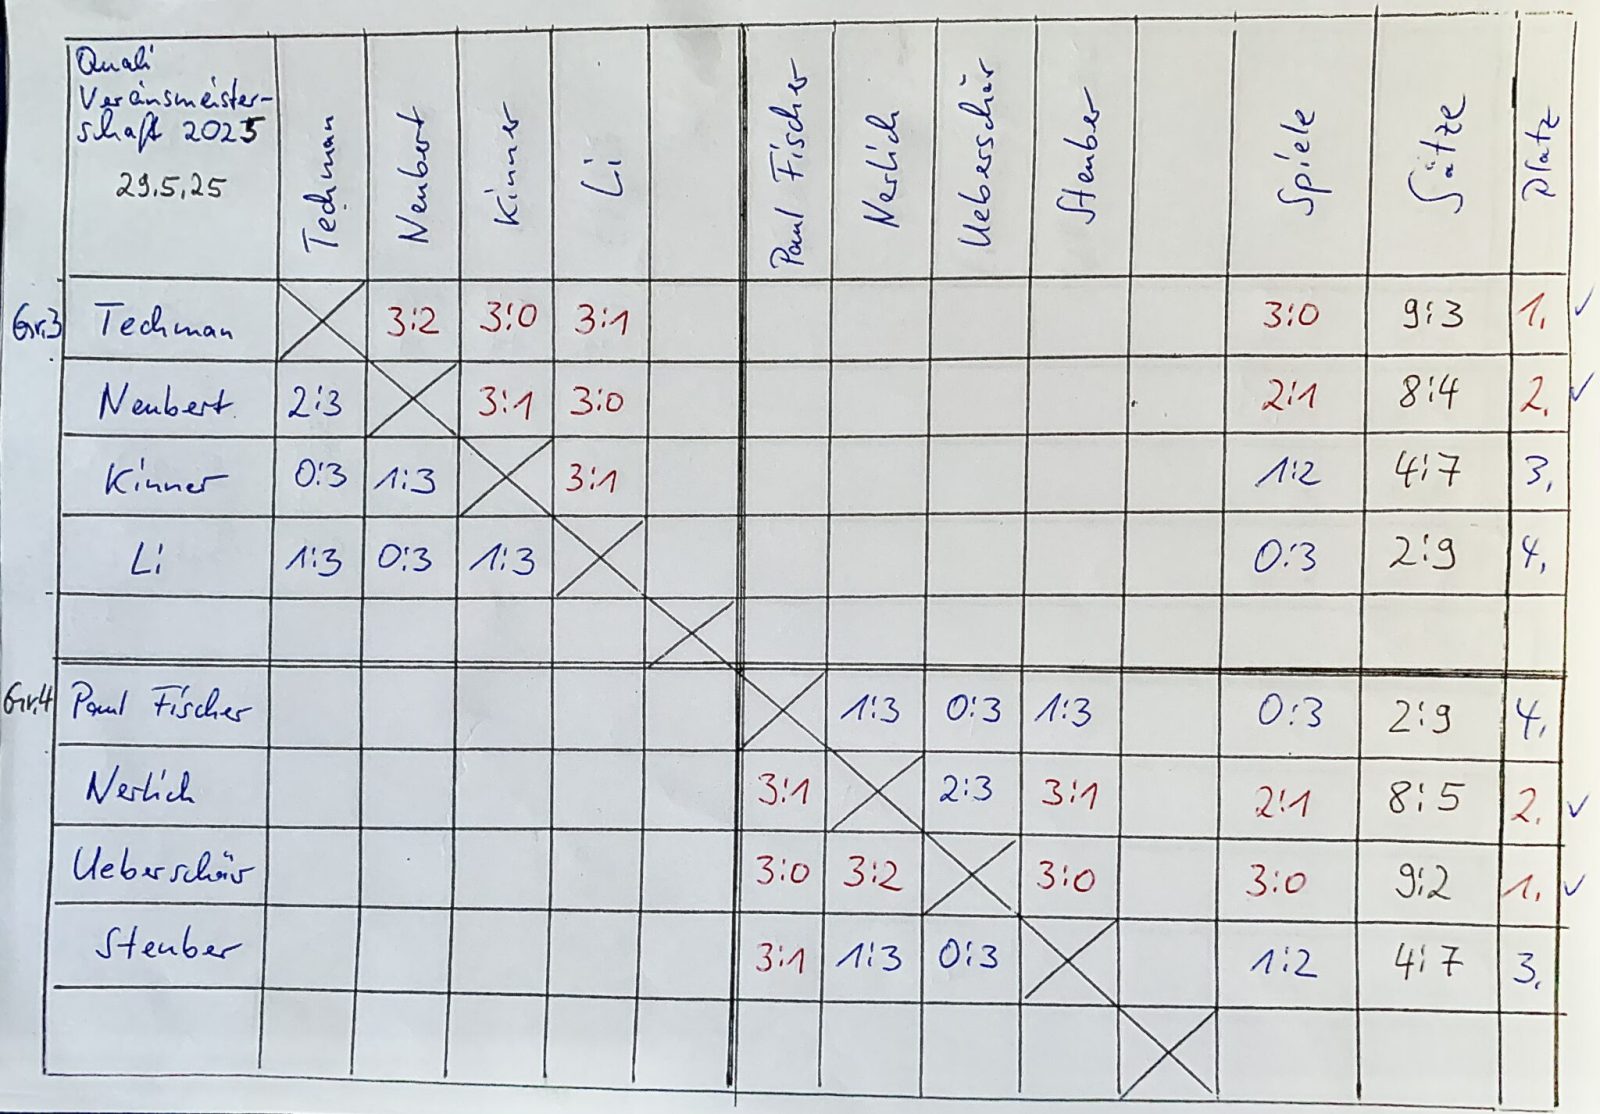 Quali
Vereinsmeister-
schaft 2025
29.5.25
Techman Neubert Kinner Li Paul Fischer Nerlich Ueberschär Steuber Spiele Sätze Platz
Gr.3 Techman 3:2 3:0 3:1 3:0 9:3 1. ✓
Neubert 2:3 3:1 3:0 2:1 8:4 2. ✓
Kinner 0:3 1:3 3:1 1:2 4:7 3.
Li 1:3 0:3 1:3 0:3 2:9 4.
Gr.4 Paul Fischer 1:3 0:3 1:3 0:3 2:9 4.
Nerlich 3:1 2:3 3:1 2:1 8:5 2. ✓
Ueberschär 3:0 3:2 3:0 3:0 9:2 1. ✓
Steuber 3:1 1:3 0:3 1:2 4:7 3.